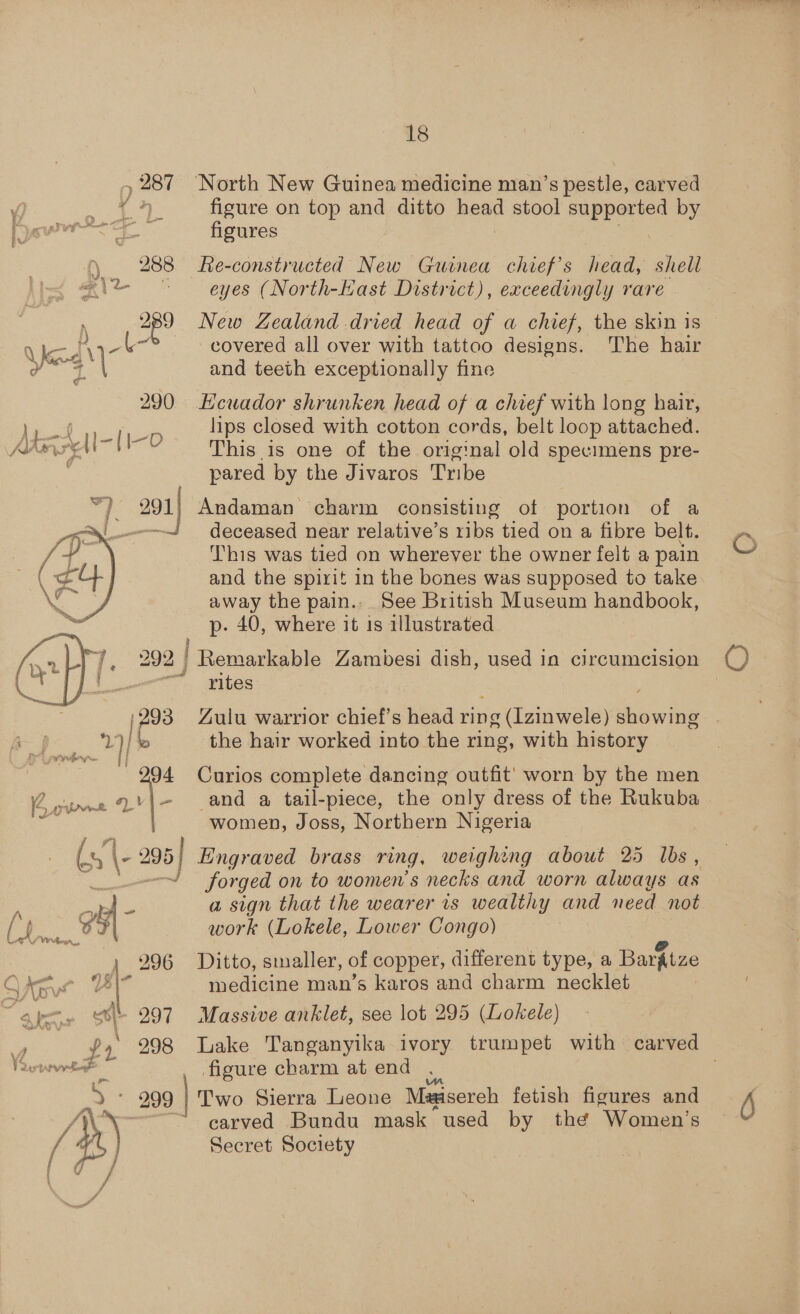 18
287 North New Guinea medicine man's pestle, carved
figure on top and ditto head stool supported by
figures
288 Re-constructed New Guinea chief's head, shell
eyes (North-East District), exceedingly rare
289 New Zealand dried head of a chief, the skin is
covered all over with tattoo designs. The hair
and teeth exceptionally fine
290 Ecuador shrunken head of a chief with long hair,
lips closed with cotton cords, belt loop attached.
This is one of the original old specimens pre-
pared by the Jivaros Tribe
291 Andaman charm consisting of portion of a
deceased near relative's ribs tied on a fibre belt.
This was tied on wherever the owner felt a pain
and the spirit in the bones was supposed to take
away the pain. See British Museum handbook,
p. 40, where it is illustrated
292 Remarkable Zambesi dish, used in circumcision
rites
293 Zulu warrior chief's head ring (Izinwele) showing
the hair worked into the ring, with history
294 Curios complete dancing outfit worn by the men
and a tail-piece, the only dress of the Rukuba
women, Joss, Northern Nigeria
295 Engraved brass ring, weighing about 25 lbs,
forged on to women's necks and worn always as
a sign that the wearer is wealthy and need not
work (Lokele, Lower Congo)
296 Ditto, smaller, of copper, different type, a Barotze
medicine man's karos and charm necklet
297 Massive anklet, see lot 295 (Lokele)
298 Lake Tanganyika ivory trumpet with carved
figure charm at end
299 Two Sierra Leone Maisereh fetish figures and
carved Bundu mask used by the Women's
Secret Society